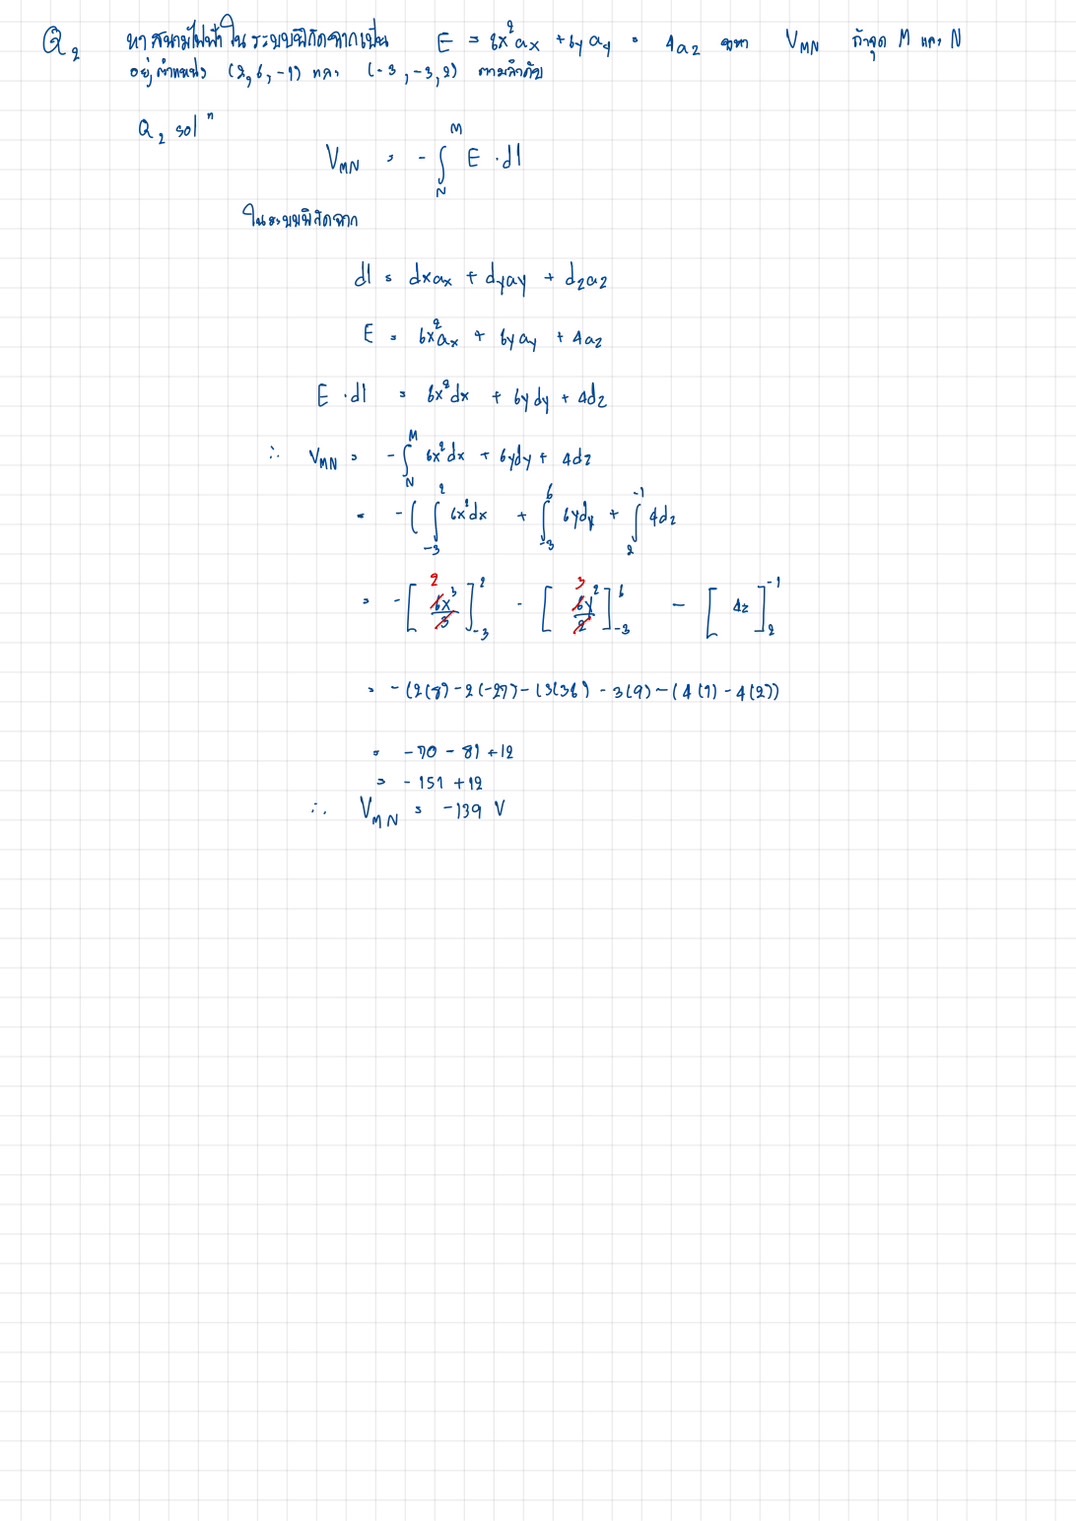 Q2 หาสนามไฟฟ้าในระบบพิกัดฉากเป็น E = 6x²ax + 6y ay = 4az จงหา VMN ถ้าจุด M และ N
อยู่ตำแหน่ง (2, 6, -1) และ (-3, -3, 2) ตามลำดับ
Q2 solⁿ
VMN = - ∫ₙᴹ E · dl
ในระบบพิกัดฉาก
dl = dxax + dyay + dzaz
E = 6x²ax + 6yay + 4az
E · dl = 6x²dx + 6ydy + 4dz
∴ VMN = - ∫ₙᴹ 6x²dx + 6ydy + 4dz
= - ( ∫₋₃² 6x²dx + ∫₋₃⁶ 6ydy + ∫₂⁻¹ 4dz
= - [ 2 6x³/3 ]₋₃² - [ 3 6y²/2 ]₋₃⁶ - [ 4z ]₂⁻¹
= - (2(8) - 2(-27) - (3(36) - 3(9) - (4(1) - 4(2))
= -70 - 81 + 12
= -151 + 12
∴ VMN = -139 V